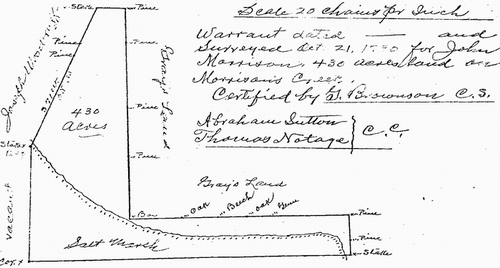 Scale 20 Chains pr Inch
Warrant dated — and
Surveyed Oct. 21, for John
Morrison. 430 acres land on
Morrison's Creek.
Certified by Brownson C. S.
Abraham Sutton
Thomas Notage
C. C.
Stake
Pine
Pine
Pine
Pine
Pine
Pine
Gray's Land
430
Acres
Stake
vacant
Gray's Land
Bay
Oak
Beech
Oak
Gum
Pine
Pine
Stake
Salt Marsh